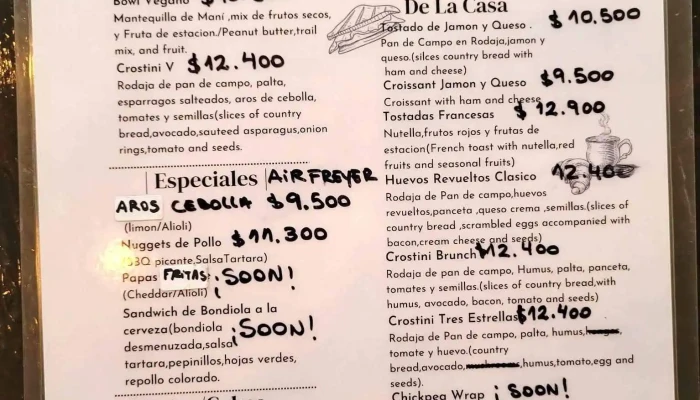 Bowl Vegano
Mantequilla de Maní ,mix de frutos secos,
y Fruta de estacion/Peanut butter,trail
mix, and fruit.
Crostini V $12.400
Rodaja de pan de campo, palta,
esparragos salteados, aros de cebolla,
tomates y semillas(slices of country
bread,avocado,sauteed asparagus,onion
rings,tomato and seeds.
Especiales AiRFREYER
AROS CEBOLLA $9.500
(limon/Alioli)
Nuggets de Pollo $11.300
picante,SalsaTartara)
Papas FRITAS ¡SOON!
(Cheddar/Alioli)
Sandwich de Bondiola a la
cerveza(bondiola ¡SOON!
desmenuzada,salsa
tartara,pepinillos,hojas verdes,
repollo colorado.
De La Casa
Tostado de Jamon y Queso . $10.500
Pan de Campo en Rodaja,jamon y
queso.(silces country bread with
ham and cheese)
Croissant Jamon y Queso $9.500
Croissant with ham and cheese
Tostadas Francesas $12.900
Nutella,frutos rojos y frutas de
estacion(French toast with nutella,red
fruits and seasonal fruits)
Huevos Revueltos Clasico 12.400
Rodaja de Pan de campo,huevos
revueltos,panceta ,queso crema ,semillas.(slices of
country bread ,scrambled eggs accompanied with
bacon,cream cheese and seeds)
Crostini Brunch $12.400
Rodaja de pan de campo, Humus, palta, panceta,
tomates y semillas.(slices of country bread,with
humus, avocado, bacon, tomato and seeds)
Crostini Tres Estrellas $12.400
Rodaja de Pan de campo, palta, humus,
tomate y huevo.(country
bread,avocado, ,humus,tomato,egg and
seeds).
Chickpea Wrap ¡SOON!